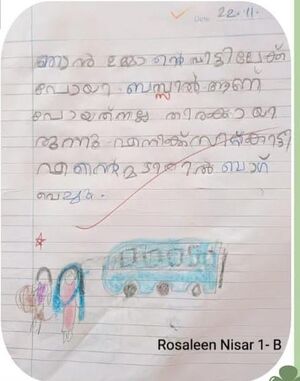 Date 22.11.
ഞാൻ ഉമ്മാന്റെ വീട്ടിലേക്ക്
പോയി. ബസ്സിൽ ആണ്
പോയത് നല്ല തിരക്കായി
രുന്നു എനിക്ക് സീറ്റ് കിട്ടി
എന്റെ മടിയിൽ ബാഗ്
വെച്ചു.
Rosaleen Nisar 1- B